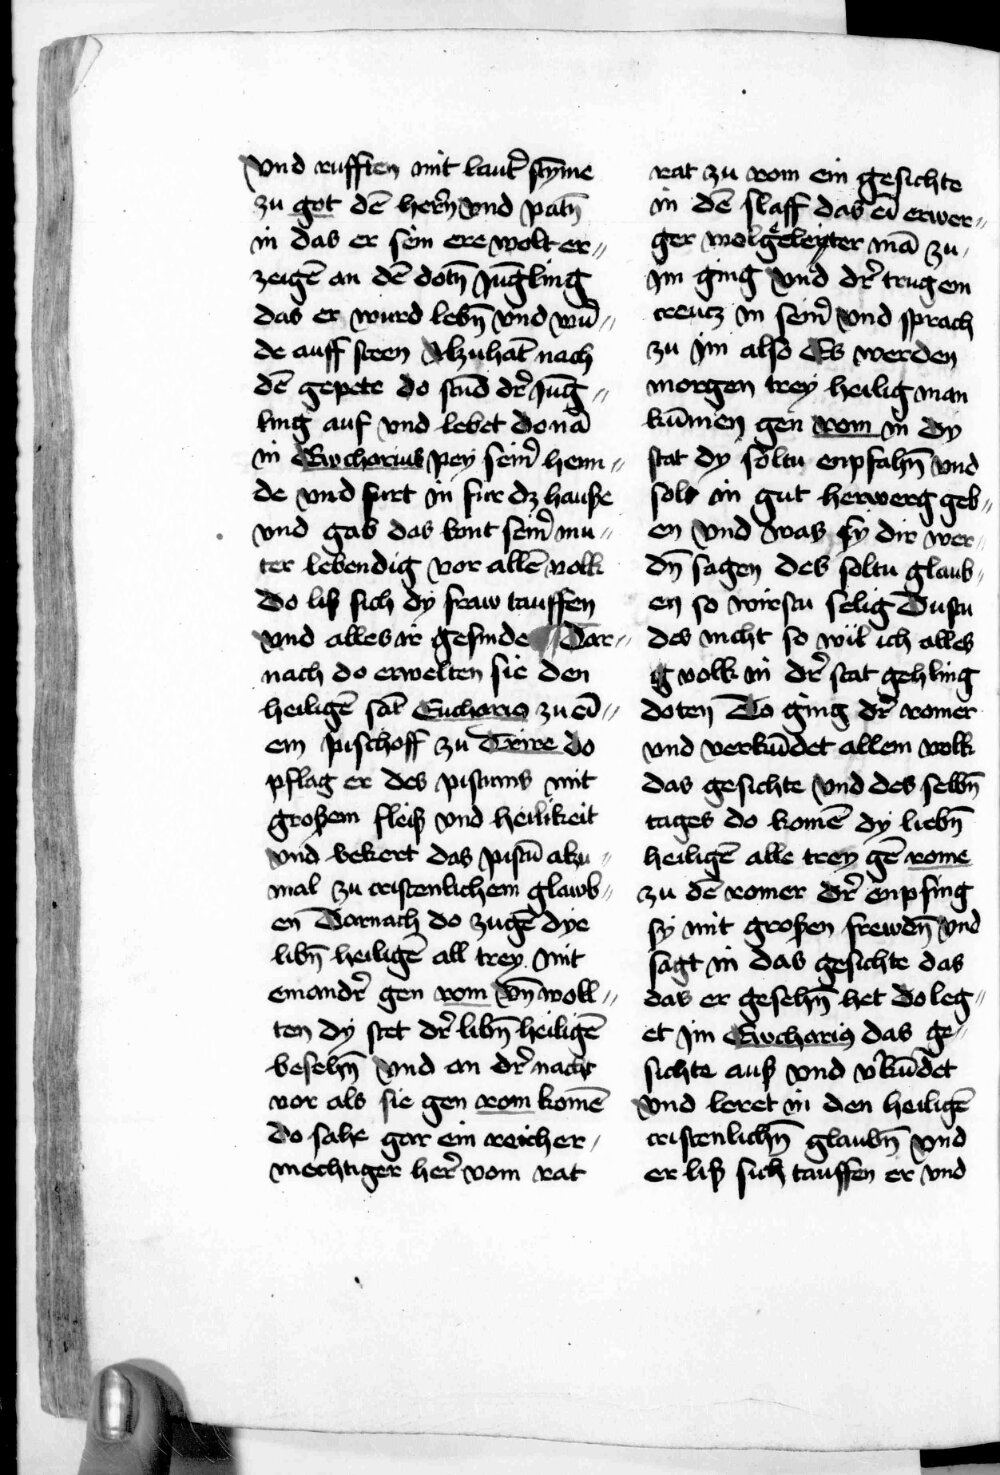 Vnd rufften mit laut̉ stȳme
zu got dē hern̄ vnd patn̄
in das er sein ere wolt er〃
zeigē an dē dotn̄ Jūgling
das er wurd lebn̄ vnd wu᷑〃
de auff steen Alzuhāt nach
dē gepete do stūd dr̉ Jūg〃
ling auf vnd lebet do nā
in Ewcharius pey sein̉ henn〃
de vnd furt in fur dz hauße
vnd gab das kint sein̉ mu〃
ter lebendig vor allē volk
Do liß sich dy fraw tauffen
vnd alles ir gesinde Dar〃
nach do erwelten sie den
heiligē sāt Eucharius zu eī〃
em pischoff zu Trire do
pflag er des pistums mit
großem fleiß vnd heilikeit
vnd bekert das pistū alzu〃
mal zu cristenlichem glawb〃
en Darnach do zugē dye
libn̄ heiligē all trey mit
einandr̉ gen rom Vn̄ woll〃
ten dy stet dr̉ libn̄ heiligē
besehn̄ Vnd an dr̉ nacht
vor als sie gen rom komē
do sahe gar ein reicher
mechtiger her̉ vom rat
rat zu rom ein gesichte
in dē slaff das eī erwer〃
ger wolgeleȳter mā zu
im ging Vnd dr̉ trug ein
creucz in sein̉ Vnd sprach
zu im also Es werden
morgen trey heilig man
kūmen gen rom in dy
stat dy soltu enpfahn̄ vnd
solt in gut herwerg geb〃
en Vnd was sy dir wer〃
dn̄ sagen des soltu glaub〃
en so wirstu selig Dustu
des nicht so wil ich alles
volk in dr̉ stat gehling
doten Do ging dr̉ romer
vnd verkūdet allem volk
das gesichte Vnd des selbn̄
tages do komē dy liebn̄
heiligē alle trey gē rome
zu dē romer dr̉ enpfing
sy mit großen frewdn̄ Vnd
sagt in das gesichte das
das er gesehn̄ het do leg〃
et im Ewcharius das ge〃
sichte auß vnd v̉kūdet
vnd leret in den heiligē
cristenlichn̄ glaubn̄ vnd
er liß sich tauffen er vnd